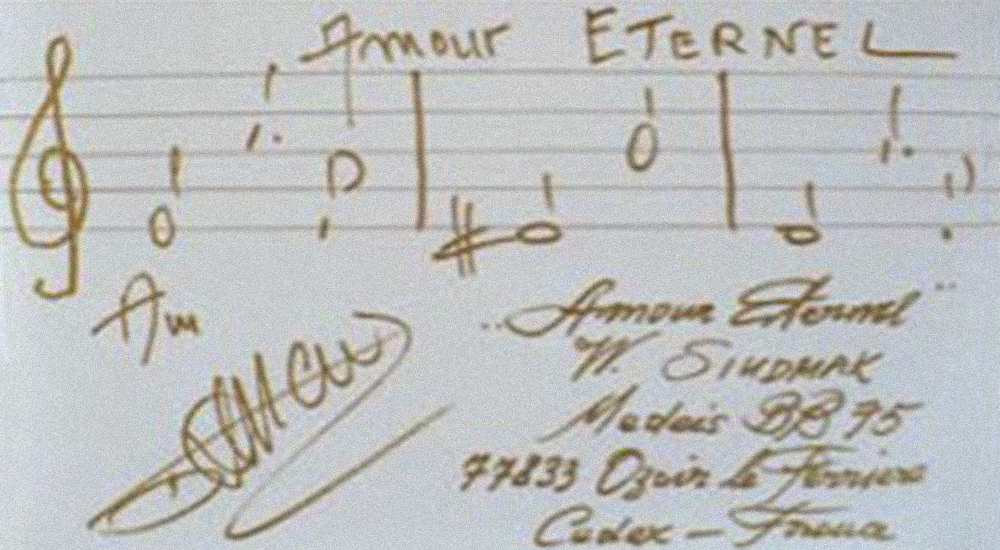 AMOUR ETERNEL
Am
"Amour Eternel"
W. SIUDMAK
BB 75
77833 Ozoir la Ferriere
Cedex – France